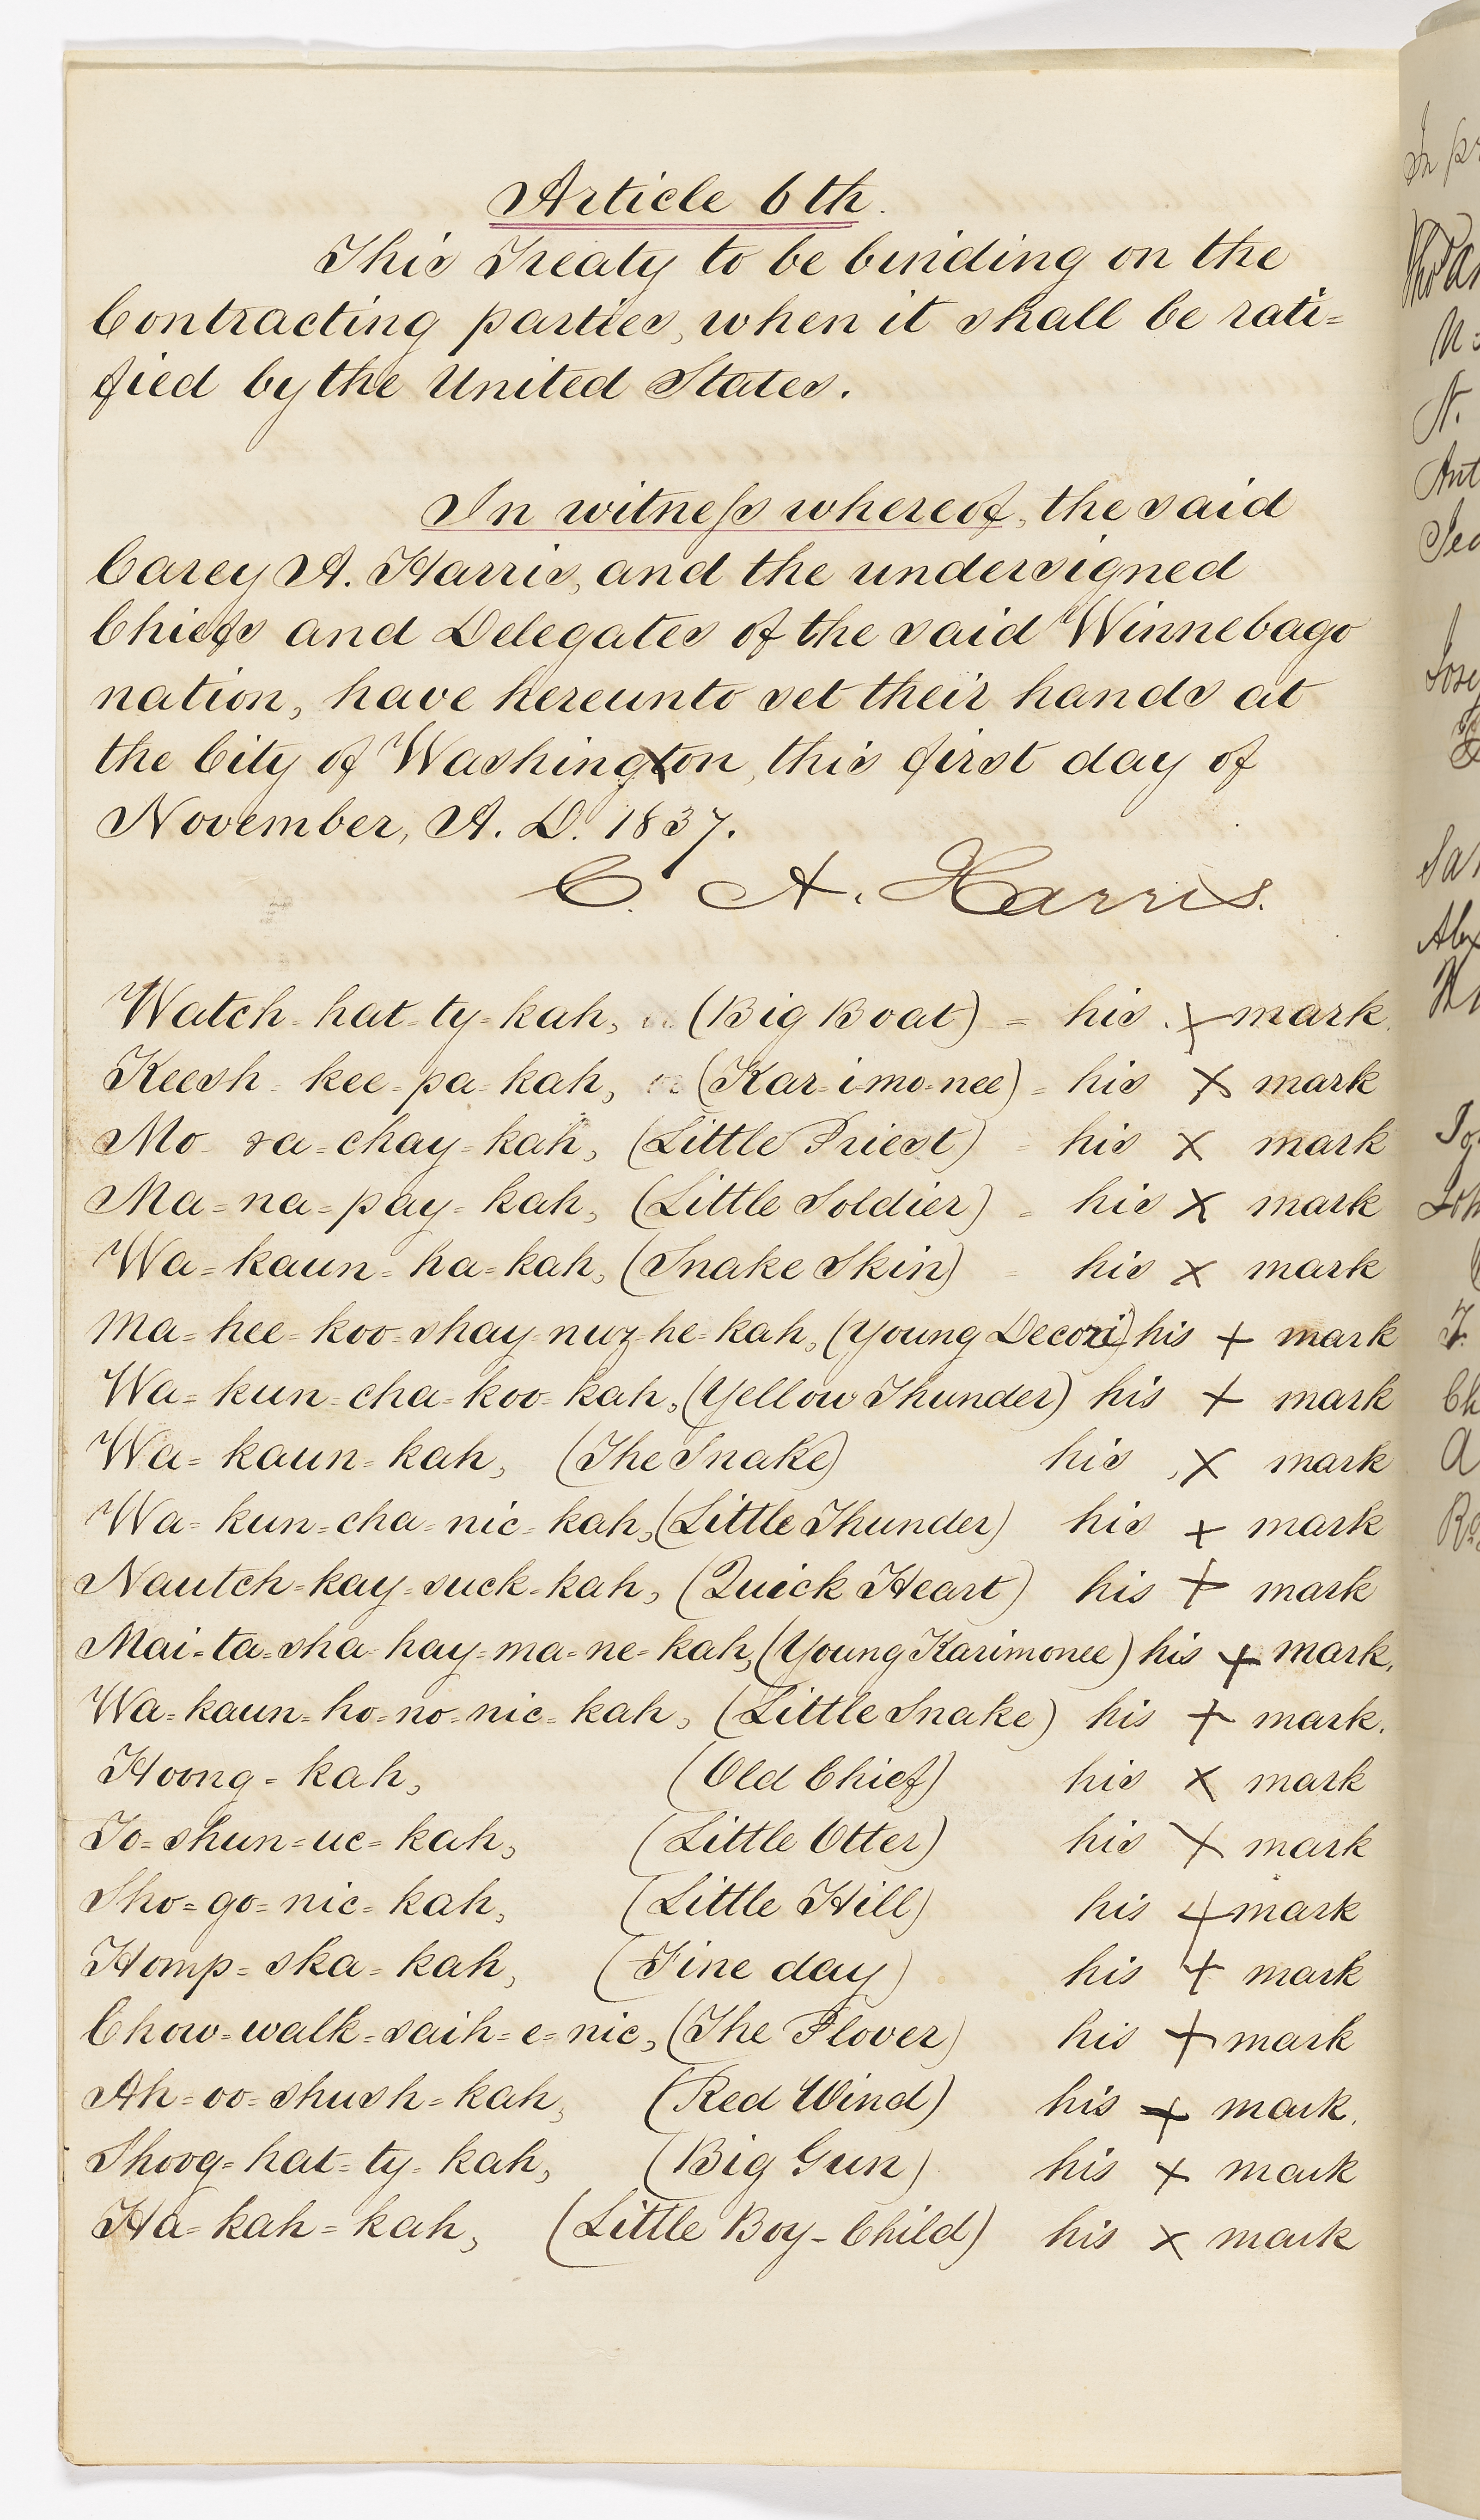 Article 6th.
This Treaty to be binding on the
Contracting parties, when it shall be rati=
fied by the United States.
In witneſs whereof, the said
Carey A. Harris, and the undersigned
Chiefs and Delegates of the said Winnebago
nation, have hereunto set their hands at
the City of Washington, this first day of
November, A. D. 1837.
C. A. Harris.
Watch-hat-ty-kah, (Big Boat) = his x mark.
Keesh-kee-pa-kah, or (Kar-i-mo-nee) = his x mark
Mo-ra-chay-kah, (Little Priest) - his x mark
Ma=na=pay=kah, (Little Soldier) = his x mark
Wa=kaun-ha=kah, (Snake Skin) - his x mark
Ma=hee=koo=shay-nuz-he-kah, (Young Decori) his + mark
Wa=kun-cha-koo-kah, (Yellow Thunder) his + mark
Wa=kaun-kah, (The Snake) his x mark
Wa=kun=cha=nic=kah, (Little Thunder) his + mark
Nautch-kay-suck-kah, (Quick Heart) his + mark
Mai=ta=sha-hay=ma=ne=kah, (Young Karimonee) his + mark.
Wa=kaun=ho=no=nic=kah, (Little Snake) his + mark.
Hoong=kah, (Old Chief) his x mark
To=shun=uc=kah, (Little Otter) his x mark
Sho=go=nic=kah, (Little Hill) his + mark
Homp=ska=kah, (Fine day) his + mark
Chow=walk=saih=e=nic, (The Plover) his + mark
Ah=oo=shush=kah, (Red Wind) his + mark.
Shoog=hat=ty=kah, (Big Gun) his x mark
Ha=kah=kah, (Little Boy-Child) his x mark
In pr
N.
Ant
Sa
Alex
Joh
Ch
A